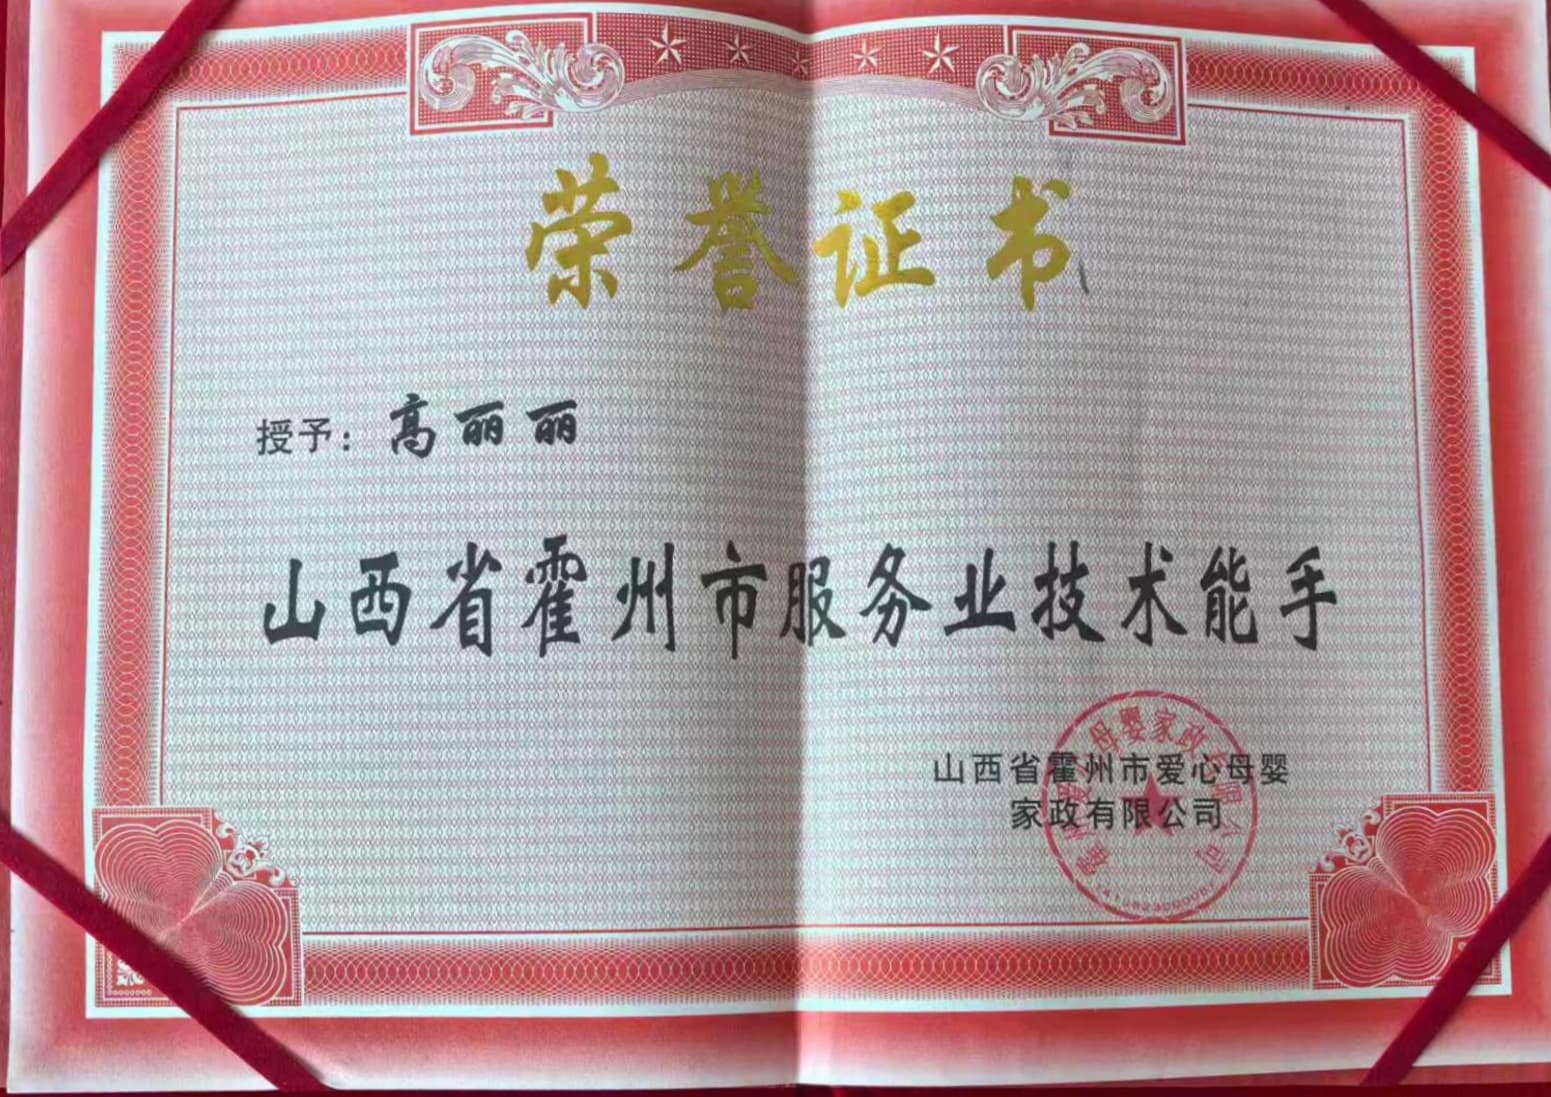 荣誉证书
授予：高丽丽
山西省霍州市服务业技术能手
山西省霍州市爱心母婴
家政有限公司